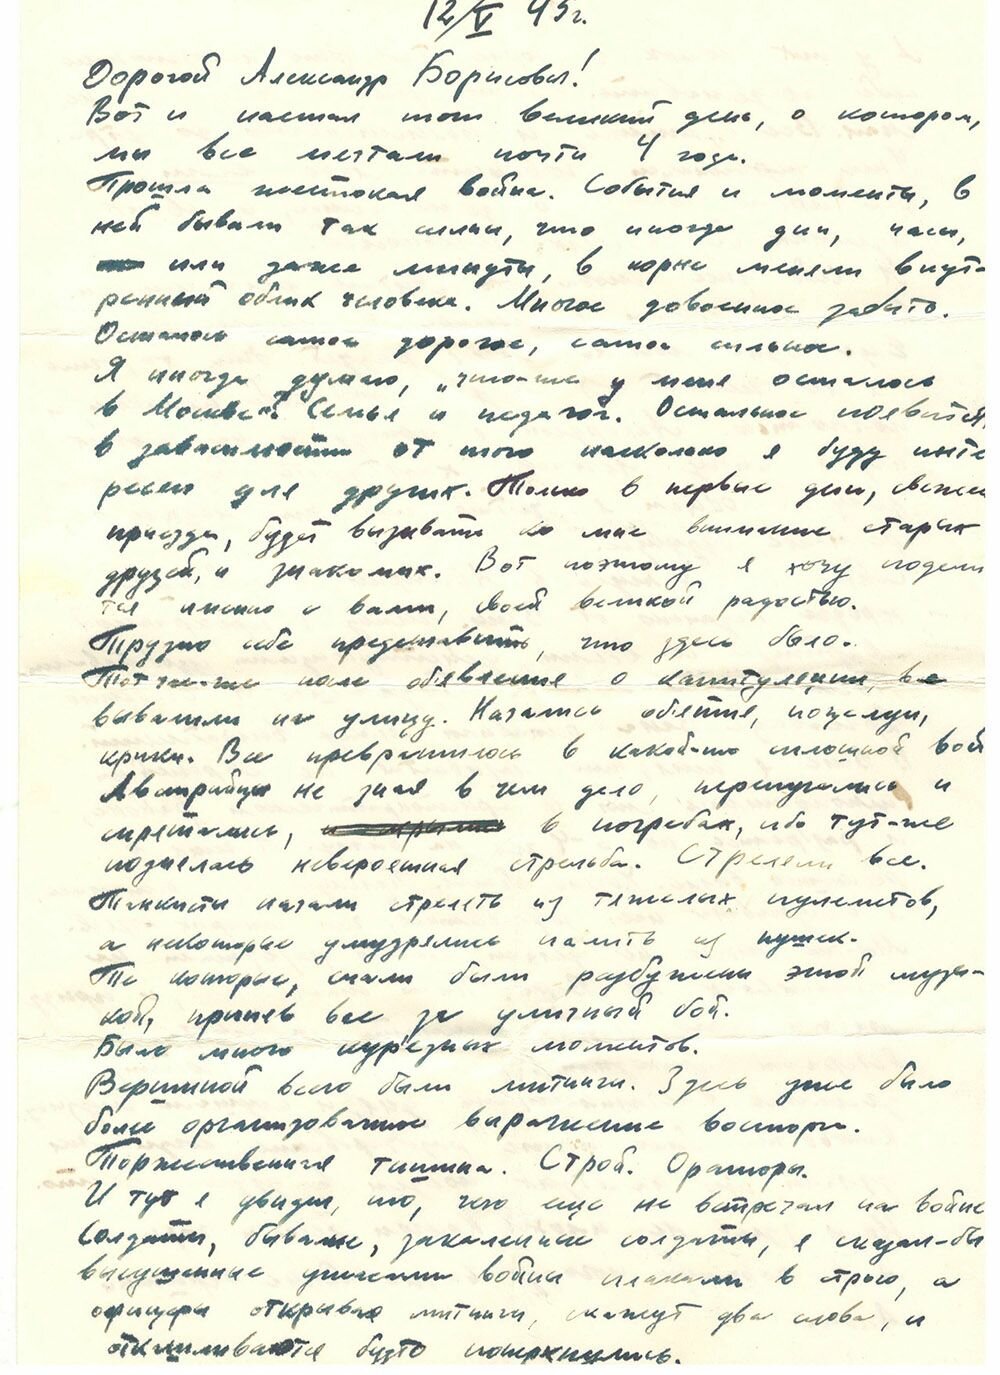 12/V 45г.
Дорогой Александр Борисович!
Вот и настал тот великий день, о котором,
мы все мечтали почти 4 года.
Прошла жестокая война. События и моменты, в
ней бывали так сильны, что иногда дни, часы,
или даже минуты, в корне меняли внут-
ренний облик человека. Многое довоенное забыто.
Осталось самое дорогое, самое сильное.
Я иногда думаю, „что-же у меня осталось
в Москве? Семья и педагог. Остальное появится,
в зависимости от того насколько я буду инте
ресен для других. Только в первые дни, свежего
приезда, будет вызывать ко мне внимание старых
друзей, и знакомых. Вот поэтому я хочу подели
тся именно с вами, своей великой радостью.
Трудно себе представить, что здесь было.
Тотчас-же после обявления о капитуляции, все
вывалили на улицу. Начались обятия, поцелуи,
крики. Все превратилось в какой-то сплошной вой
Австрийцы не зная в чем дело, перепугались и
спрятались, в погребах, ибо тут-же
поднялась невероятная стрельба. Стреляли все.
Танкисты начали стрелять из тяжелых пулеметов,
а некоторые умудрялись палить из пушек.
Те которые, спали были разбужены этой музы-
кой, приняв все за уличный бой.
Было много курьезных моментов.
Вершиной всего были митинги. Здесь уже было
более организованное выражение восторга.
Торжественная тишина. Строй. Ораторы.
И тут я увидел, то, чего еще не встречал на войне
Солдаты, бывалые, закаленные солдаты, я сказал-бы
высушенные ужасами войны плакали в строю, а
офицеры открывая митинги, скажут два слова, и
откашливаются будто поперхнулись.